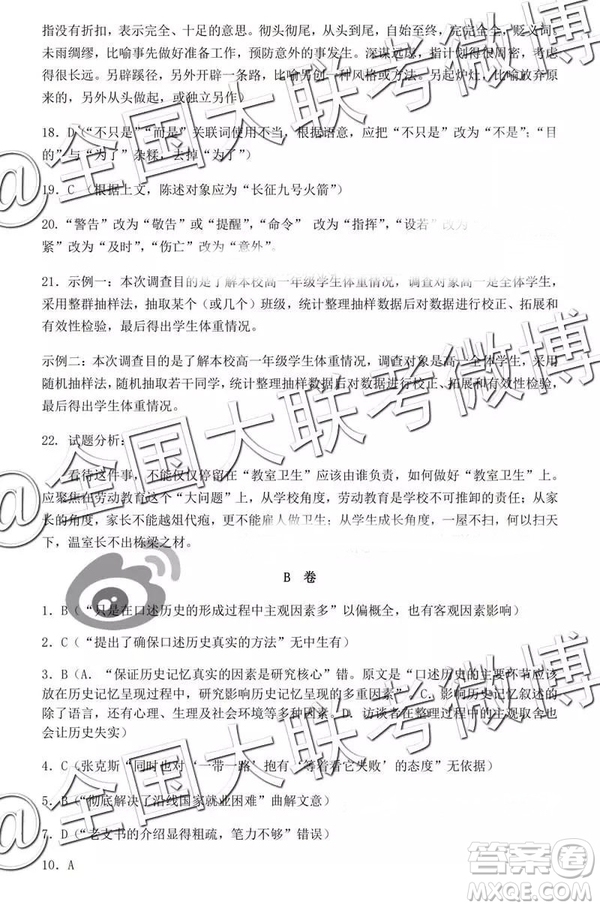 指没有折扣，表示完全、十足的意思。彻头彻尾，从头到尾，完完全全，贬义词。
未雨绸缪，比喻事先做好准备工作，预防意外的事发生。深谋远虑，指计划周密，考虑
得很长远。另辟蹊径，另外开辟一条路，比喻另创一种风格或方法。另起炉灶，比喻放弃原
来的，另外从头做起，或独立另作）
18．D（“不只是”“而是”关联词使用不当，应根据语意，应把“不只是”改为“不是”；“目
的”与“为了”杂糅，去掉“为了”）
19．C（根据上文，陈述对象应为“长征九号火箭”）
20．“警告”改为“敬告”或“提醒”，“命令” 改为“指挥”，“设若”改为
紧”改为“及时”，“伤亡”改为“意外”。
21．示例一：本次调查目的是了解本校高一年级学生体重情况，调查对象高一是全体学生，
采用整群抽样法，抽取某个（或几个）班级，统计整理抽样数据后对数据进行校正、拓展和
有效性检验，最后得出学生体重情况。
示例二：本次调查目的是了解本校高一年级学生体重情况，调查对象是高一全体学生，采用
随机抽样法，随机抽取若干同学，统计整理抽样数据后对数据进行校正、拓展和有效性检验，
最后得出学生体重情况。
22．试题分析：
看待这件事，不能仅仅停留在“教室卫生”应该由谁负责，如何做好“教室卫生”上。
应聚焦在劳动教育这个“大问题”上，从学校角度，劳动教育是学校不可推卸的责任；从家
长的角度，家长不能越俎代庖，更不能雇人做卫生；从学生成长角度，一屋不扫，何以扫天
下，温室长不出栋梁之材。
B 卷
1．B（“只是在口述历史的形成过程中主观因素多”以偏概全，也有客观因素影响）
2．C（“提出了确保口述历史真实的方法”无中生有）
3．B（A．“保证历史记忆真实的因素是研究核心”错。原文是“口述历史的主要环节应该
放在历史记忆呈现的多样性以及影响历史记忆呈现的多重因素”。C．影响历史记忆叙述的
除了语言，还有心理、生理及社会环境等多种因素。D．访谈者在整理过程中的主观取舍也
会让历史失实）
4．C（张克斯“同时也对‘一带一路’抱有‘等着看它失败’的态度”无依据）
5．B（“彻底解决了沿线国家就业困难”曲解文意）
7．D（“老支书的介绍显得粗疏，笔力不够”错误）
10．A
@全国大联考微博
答案卷
MXQE.COM